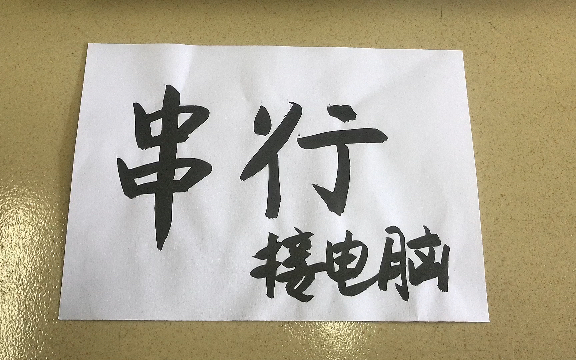 串行
接电脑